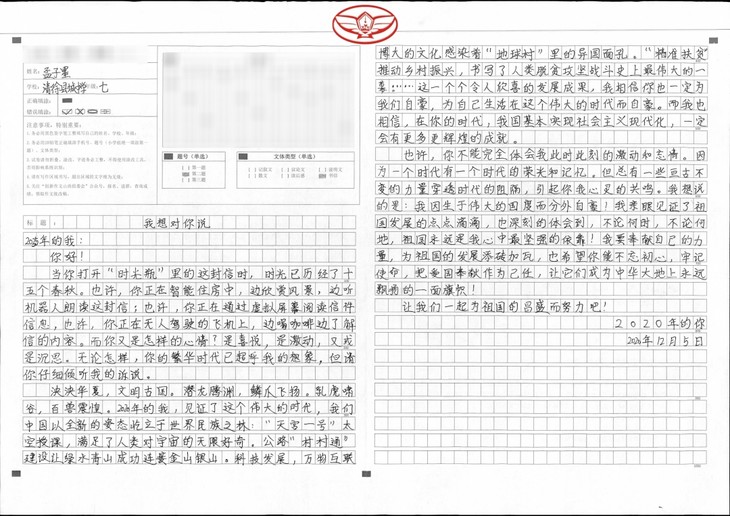 姓名：孟子星
学校：清徐县城榫 年级：七
正确填涂：
错误填涂：
注意事项，特别重要：
题号（单选）
文体类型（单选）
第一题
第二题
第三题
记叙文
说明文
议论文
散文
书信
标题：
我想对你说
2035年的我：
你好！
当你打开“时光瓶”里的这封信时，时光已历经了十
五个春秋。也许，你正在智能住房中，边欣赏风景，边听
机器人朗读这封信；也许，你正在通过虚拟屏幕阅读信件
信息，也许，你正在无人驾驶的飞机上，边喝咖啡边了解
信的内容。而你又是怎样的心情？是喜悦，是激动，又或
是沉思。无论怎样，你的繁华时代已超乎我的想象，但请
你仔细倾听我的诉说。
泱泱华夏，文明古国。潜龙腾渊，鳞爪飞扬。乳虎啸
谷，百兽震惶。2020年的我，见证了这个伟大的时代，我们
中国以全新的姿态屹立于世界民族之林：“天宫一号”太
空授课，满足了人类对宇宙的无限好奇。公路“村村通”
建设让绿水青山成功连接金山银山。科技发展，万物互联
博大的文化感染着“地球村”里的异国面孔。“精准扶贫”
推动乡村振兴，书写了人类脱贫攻坚战斗史上最伟大的一
幕！……这一个个令人欣喜的发展成果，我相信你也一定为
我们自豪，为自己生活在这个伟大的时代而自豪。而我也
相信，在你的时代，我国基本实现社会主义现代化，一定
会有更多更辉煌的成就。
也许，你不能完全体会我此时此刻的激动和忐忑。因
为一个时代有一个时代的荣光和记忆。但总有一些亘古不
变的力量穿透时代的阻隔，引起你我心灵的共鸣。我想说
的是：我因生于伟大的国度而分外自豪！我亲眼见证了祖
国发展的点点滴滴，也深刻的体会到，不论何时，不论何
地，祖国永远是我心中最坚强的依靠！我要奉献自己的力
量，为祖国的发展添砖加瓦，也希望你能不忘初心，牢记
使命，把爱国奉献作为己任，让它们成为中华大地上永远
飘扬的一面旗帜！
让我们一起为祖国的昌盛而努力吧！
2020年的你
2020年12月5日